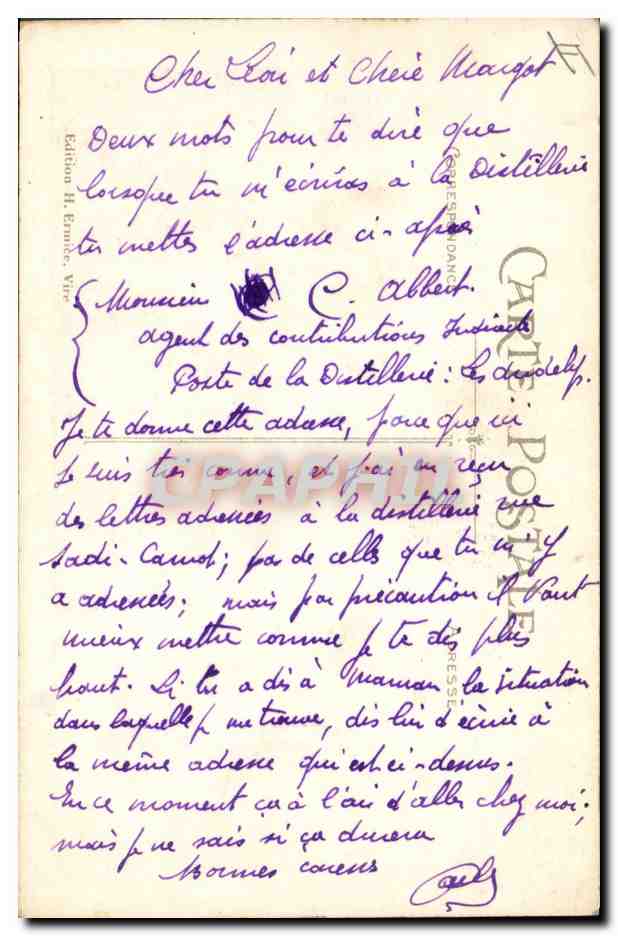 Cher Léon et Chère Margot
Deux mots pour te dire que
lorsque tu m'écriras à la Distillerie
tu mettes l'adresse ci-après
Monsieur C. Albert.
agent des contributions Indirectes
Poste de la Distillerie: Les
Je te donne cette adresse, parce que ici
je suis très connu, et j'ai eu reçu
des lettres adressées à la distillerie rue
Sadi-Carnot; pas de celles que tu m'y
a adressées; mais par précaution il vaut
mieux mettre comme je te dis plus
haut. Si tu a dis à Maman la situation
dans laquelle je me trouve, dis lui d'écrire à
la même adresse qui est ci-dessus.
En ce moment ça à l'air d'aller chez moi;
mais je ne sais si ça durera
Bonnes caresses
CARTE POSTALE
CORRESPONDANCE
ADRESSE
Edition H. Ermice, Vire
CPAPHIL